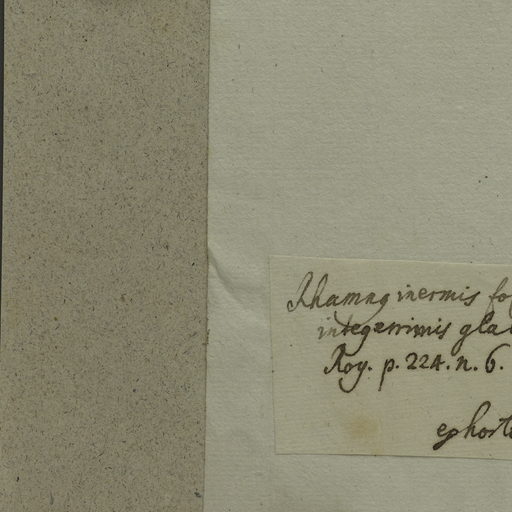 Rhamng inermis fo
integerrimis gla
Roy. p. 224. n. 6.
ephorto